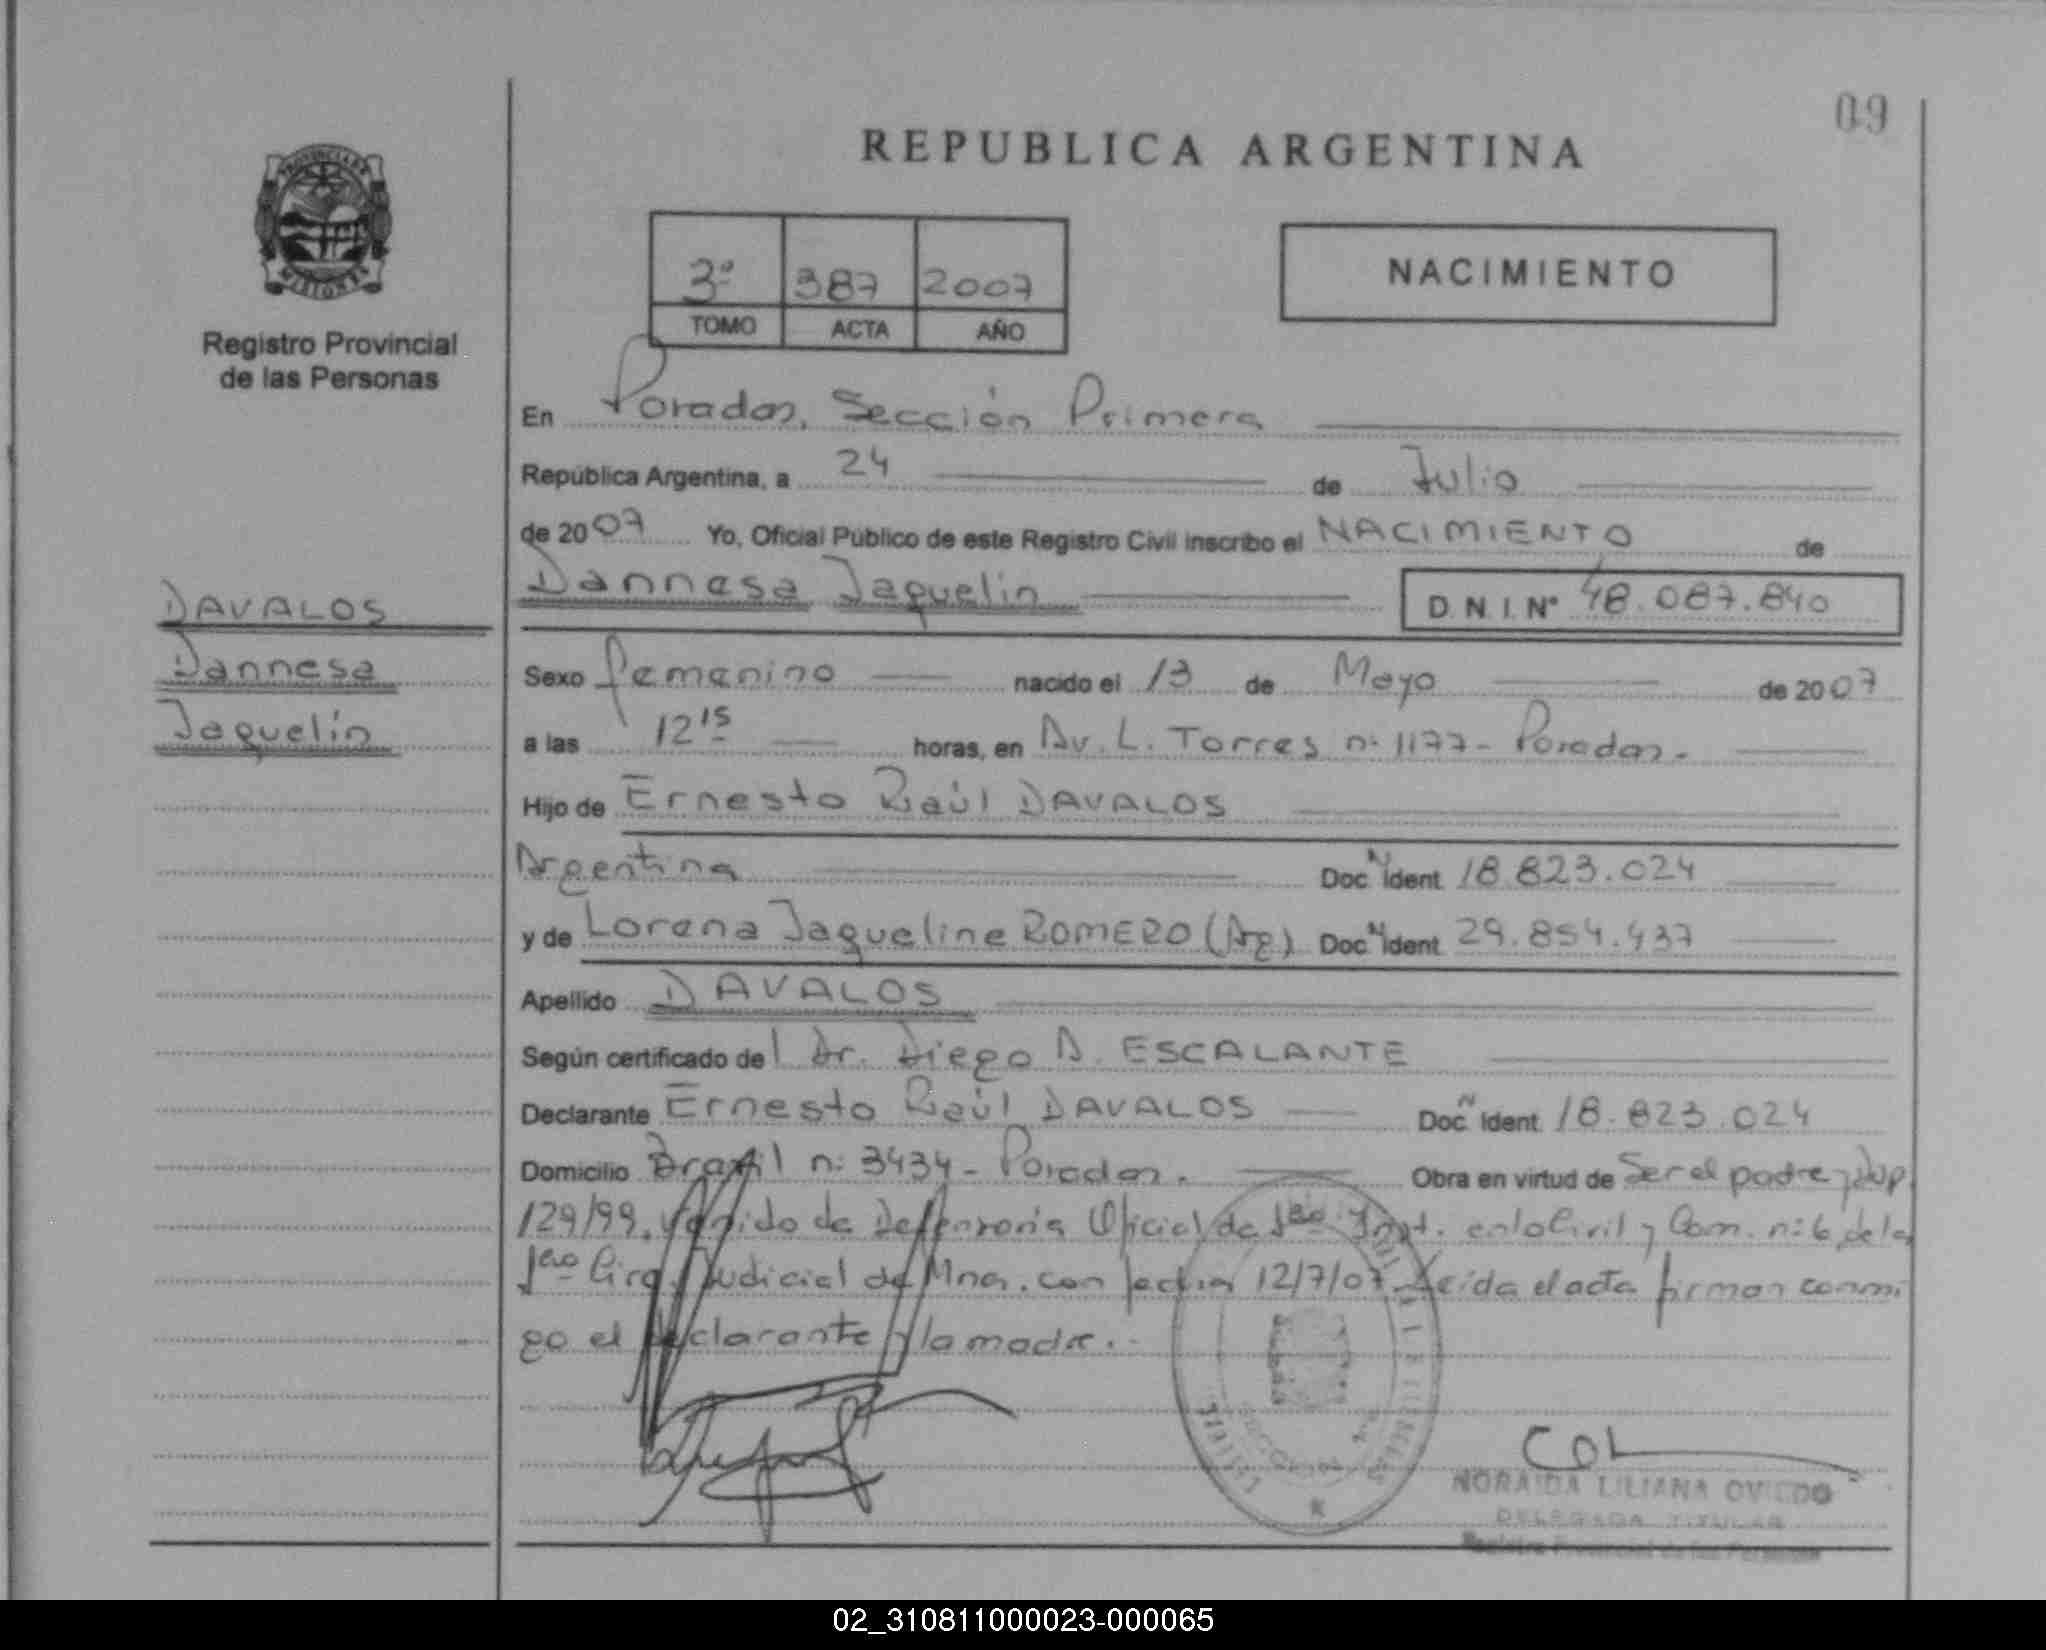 09
REPUBLICA ARGENTINA
PROVINCIA DE
MISIONES
Registro Provincial
de las Personas
3º 387 2007
TOMO ACTA AÑO
NACIMIENTO
En Posadas, Sección Primera
República Argentina, a 24 de Julio
de 2007 Yo, Oficial Público de este Registro Civil inscribo el NACIMIENTO de
Dannesa Jaquelin D.N.I. Nº 48.087.840
DAVALOS
Dannesa
Jaquelin
Sexo femenino nacido el 13 de Mayo de 2007
a las 12 15 horas, en Av. L. Torres nº 1177 - Posadas.-
Hijo de Ernesto Raúl DAVALOS
Argentina Doc. N Ident 18.823.024
y de Lorena Jaqueline ROMERO (Arg) Doc. N Ident. 29.854.437
Apellido DAVALOS
Según certificado del Dr. Diego A. ESCALANTE
Declarante Ernesto Raúl DAVALOS Doc. N Ident. 18.823.024
Domicilio Brasil nº 3434 - Posadas. Obra en virtud de Ser el padre y Disp.
129/99. Venido de Defensoría Oficial de 1era Inst. en lo Civil y Com. nº 6, de la
1era Circ. Judicial de Mnes. con fecha 12/7/07. Leída el acta firman conmi
go el declarante y la madre.-
NORAIDA LILIANA OVIEDO
DELEGADA TITULAR
Registro Provincial de las Personas
02_310811000023-000065